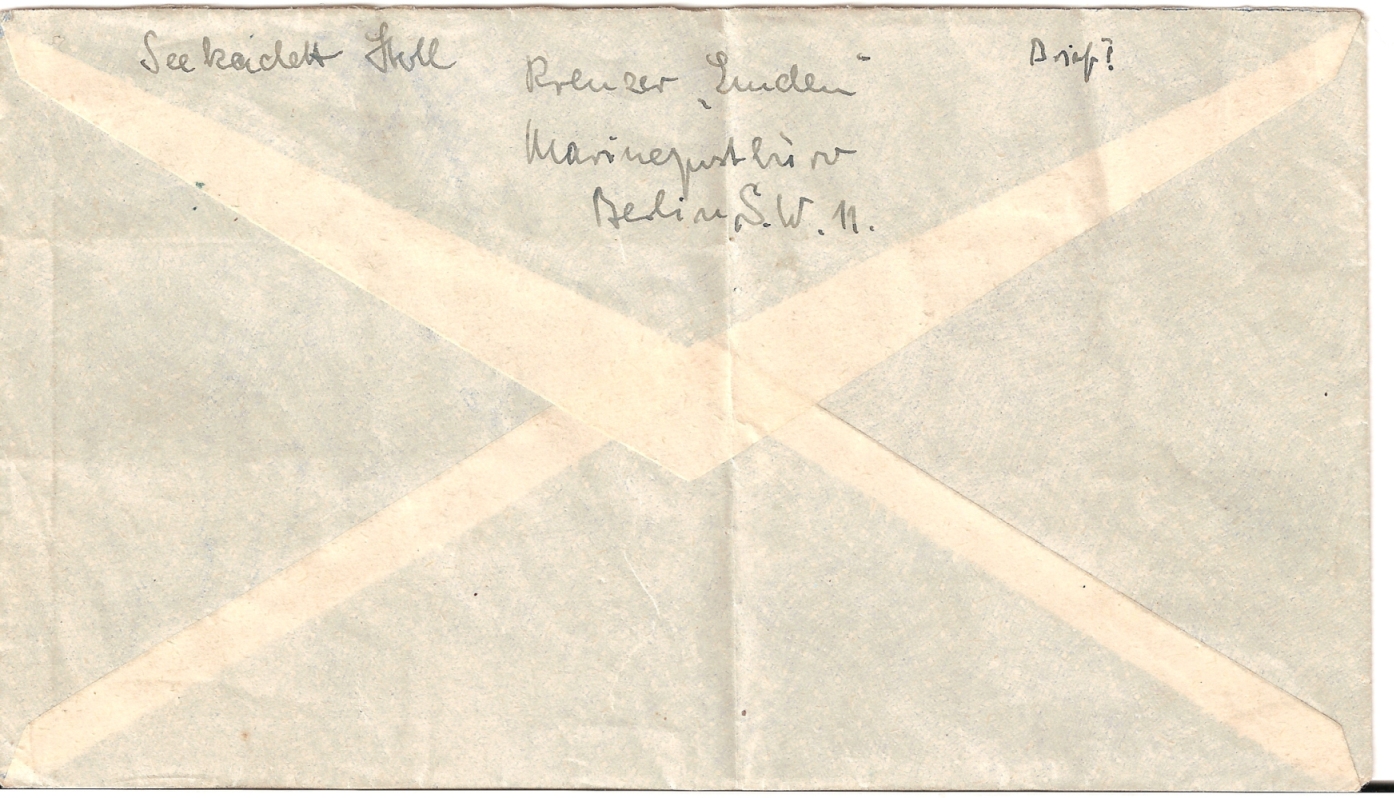 Seekadett Stoll
Kreuzer „Emden“
Marinepostbüro
Berlin S.W. 11.
Brief?